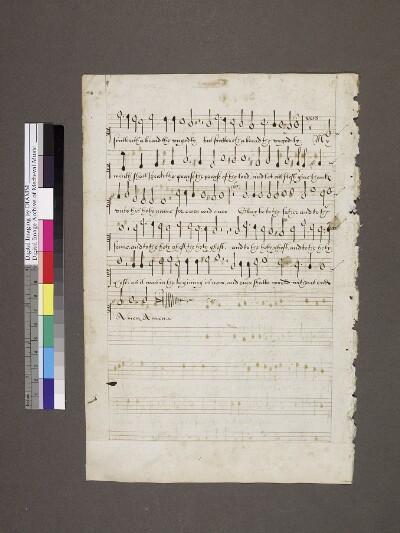 Digital Imaging by DIAMM
Digital Image Archive of Medieval Music
abroad the ungodly, but abroad the ungodly My
mouth shall speak the prayse of the lord, and let all flesh give thanks
unto his holy name for ever and ever Glory be to the father and to the
sonne and to the holy ghost the holy ghost, and to the holy ghost, and to the holy
as it was in the beginning is now, and ever shalbe world without ende
Amen, Amen.